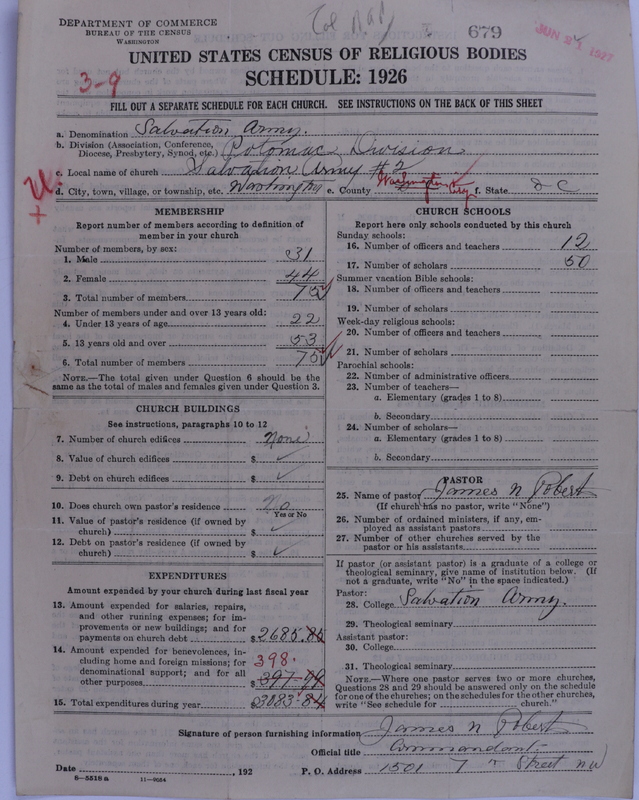 DEPARTMENT OF COMMERCE
BUREAU OF THE CENSUS
WASHINGTON
679
UNITED STATES CENSUS OF RELIGIOUS BODIES
SCHEDULE: 1926
3-9
FILL OUT A SEPARATE SCHEDULE FOR EACH CHURCH. SEE INSTRUCTIONS ON THE BACK OF THIS SHEET
a. Denomination Salvation Army.
b. Division (Association, Conference, Diocese, Presbytery, Synod, etc.) Potomac Division
c. Local name of church Salvation Army #2
d. City, town, village, or township, etc. Washington e. County Washington City f. State D C
MEMBERSHIP
Report number of members according to definition of
member in your church
Number of members, by sex:
1. Male 31
2. Female 44
3. Total number of members 75
Number of members under and over 13 years old:
4. Under 13 years of age 22
5. 13 years old and over 53
6. Total number of members 75
NOTE.—The total given under Question 6 should be
same as the total of males and females given under Question 3.
CHURCH BUILDINGS
See instructions, paragraphs 10 to 12
7. Number of church edifices None
8. Value of church edifices $ ✓
9. Debt on church edifices $ ✓
10. Does church own pastor's residence No
Yes or No
11. Value of pastor's residence (if owned by
church) $ ✓
12. Debt on pastor's residence (if owned by
church) $ ✓
EXPENDITURES
Amount expended by your church during last fiscal year
13. Amount expended for salaries, repairs,
and other running expenses; for im-
provements or new buildings; and for
payments on church debt $ 2685.
14. Amount expended for benevolences, in-
cluding home and foreign missions; for 398.
denominational support; and for all
other purposes $ 397
15. Total expenditures during year 3083.84
CHURCH SCHOOLS
Report here only schools conducted by this church
Sunday schools:
16. Number of officers and teachers 12
17. Number of scholars 50
Summer vacation Bible schools:
18. Number of officers and teachers
19. Number of scholars
Week-day religious schools:
20. Number of officers and teachers
21. Number of scholars
Parochial schools:
22. Number of administrative officers
23. Number of teachers—
a. Elementary (grades 1 to 8)
b. Secondary
24. Number of scholars—
a. Elementary (grades 1 to 8)
b. Secondary
PASTOR
25. Name of pastor James N Robert
(If church has no pastor, write "None")
26. Number of ordained ministers, if any, em-
ployed as assistant pastors
27. Number of other churches served by the
pastor or his assistants
If pastor (or assistant pastor) is a graduate of a college or
theological seminary, give name of institution below. (If
not a graduate, write "No" in the space indicated.)
Pastor:
28. College Salvation Army.
29. Theological seminary
Assistant pastor:
30. College
31. Theological seminary
NOTE.—Where one pastor serves two or more churches,
Questions 28 and 29 should be answered only on the schedule
for one of the churches; on the schedules for the other churches,
write "See schedule for church."
Signature of person furnishing information James N Robert
Official title Commandant
Date , 192 P. O. Address 1501 7th Street NW
8-5518 a 11-9654